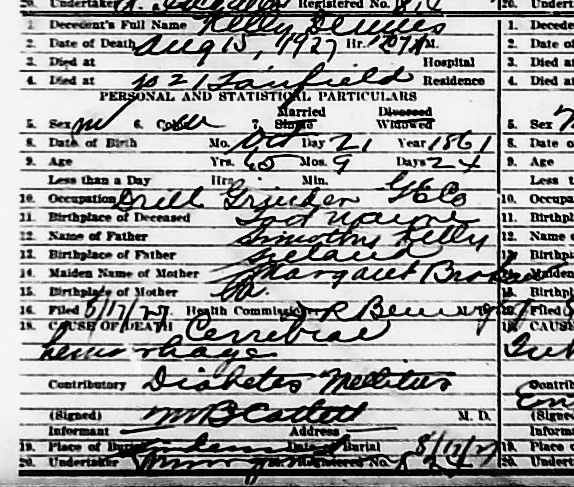 20. Undertaker Registered No. 814 20. Undertaker
1. Decedent's Full Name Kelly Dennis 1. Decede
2. Date of Death Aug 15, 1927 Hr. M. 2. Date of
3. Died at Hospital 3. Died at
4. Died at 1021 Fairfield Residence 4. Died at
PERSONAL AND STATISTICAL PARTICULARS
Married Divorced
5. Sex m 6. Color w 7. Single Widowed 5. Sex
8. Date of Birth Mo. Oct Day 21 Year 1861 8. Date o
9. Age Yrs. 65 Mos. 9 Days 24 9. Age
Less than a Day Hrs. Min. Less t
10. Occupation Drill Grinder G E Co 10. Occupa
11. Birthplace of Deceased Fort Wayne 11. Birthpl
12. Name of Father Timothy Kelly 12. Name o
13. Birthplace of Father Ireland 13. Birthpl
14. Maiden Name of Mother Margaret Maiden
15. Birthplace of Mother 15. Birthpl
16. Filed 8/17/27. Health Commissioner M. D. Filed
18. CAUSE OF DEATH Cerrebral 18. CAUSE
hemorrhage
Contributory Diabetes Mellitus Contrib
(Signed) M. D. (Signed
Informant Address Informa
19. Place of Burial Date of Burial 8/17/27 19. Place o
20. Undertaker Registered No. 20. Undert